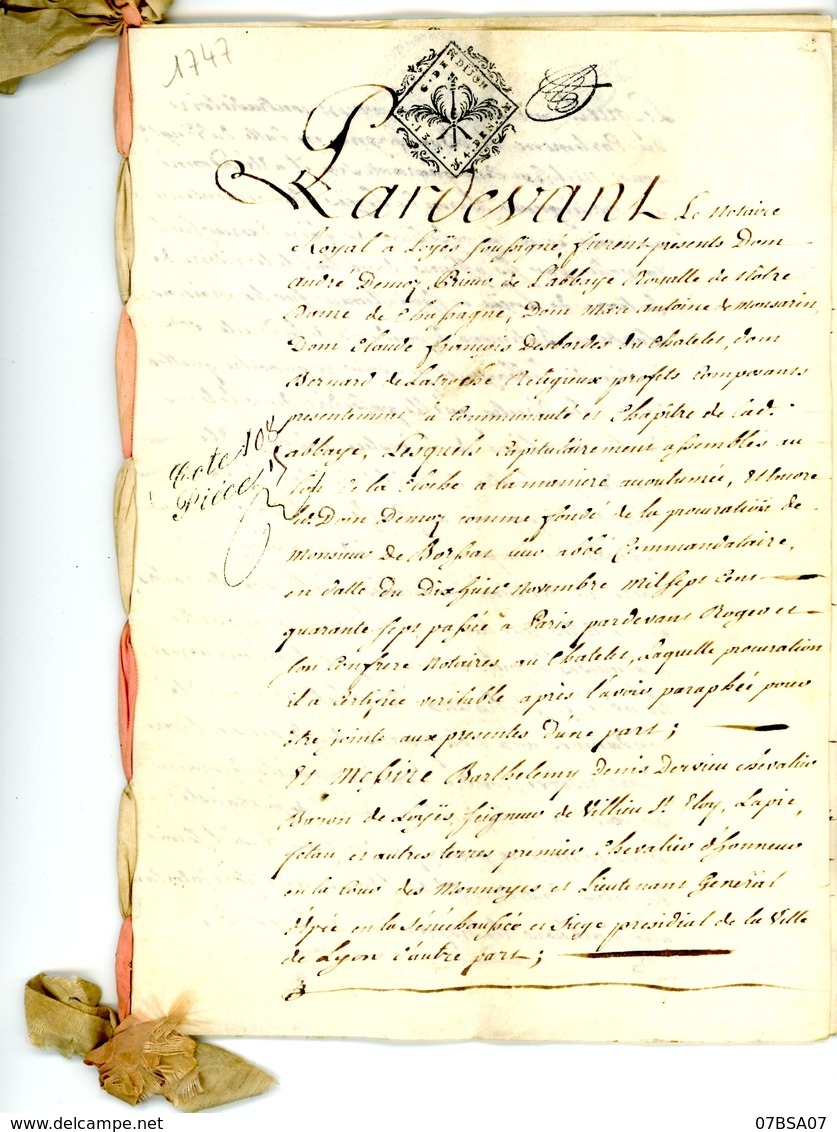 1747
G. DE DIJON
Pardevant Le Notaire
Royal a Loÿes soussigné, furent presents Dom
andré Demoz Prieur de L'abbaye Royalle de Nôtre
Dame de Chassagne, Dom Marc antoine de Monsarin,
Dom Claude françois Desbordes du Chatelet, dom
Bernard de Latroche Religieux profets Composants
presentement la Communauté et Chapitre de lad.
abbaye, Lesquels Capitulairement assemblés au
son de la Cloche a la maniere accoutumée, Et encore
led. Dom Demoz comme fondé de la procuration de
Monsieur de Borssat abbé Commandataire,
en datte du Dix huit Novembre Mil sept Cent
quarante sept passée a Paris pardevant Roger et
son Confrere Notaires au Chatelet, Laquelle procuration
il a Certifiée veritable apres l'avoir paraphée pour
être jointe aux presentes d'une part ;
Et Messire Barthelemy Denis Dervieu chevalier
Baron de Loÿes, seigneur de Villieu St. Eloy, Lapie,
et autres terres premier Chevalier d'honneur
en la Cour des Monnoyes et Lieutenant General
d'épée en la Sénéchaussée et Siege presidial de la Ville
de Lyon d'autre part ;
Cote 108
Piéce
07BSA07